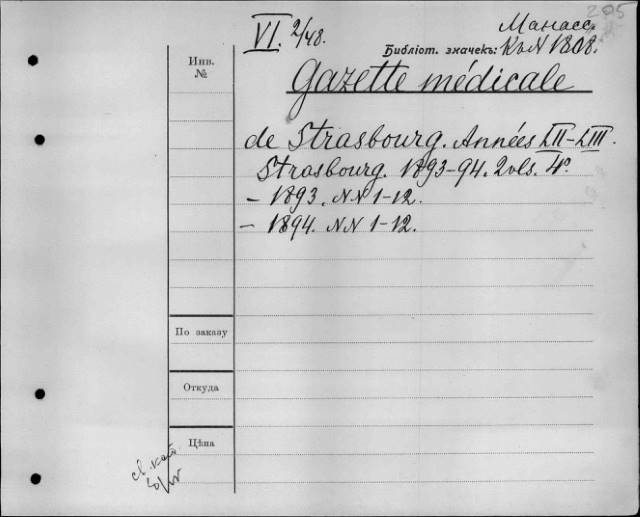 205
VI. 2/48.
Манасс.
Библіот. значекъ: К. N 1808.
Инв.
№
Gazette médicale
de Strasbourg. Années LII-LIII.
Strasbourg. 1893-94. 2 vls. 4º.
- 1893. NN 1-12.
- 1894. NN 1-12.
По заказу
Откуда
Цѣна